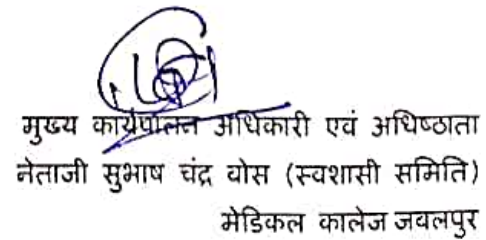 मुख्य कार्यपालन अधिकारी एवं अधिष्ठाता
नेताजी सुभाष चंद्र वोस (स्वशासी समिति)
मेडिकल कालेज जवलपुर